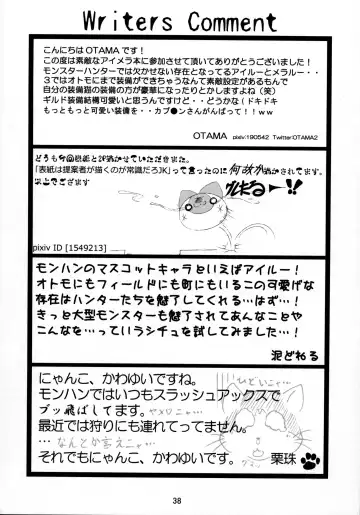 Writers Comment
こんにちは OTAMA です！
この度は素敵なアイメラ本に参加させて頂いてありがとうございました！
モンスターハンターでは欠かせない存在となってるアイルーとメラルー・・
３ではオトモにまで装備ができちゃうなんて素敵設定があるもんで
自分の装備猫の装備の方が豪華になったりとかしますよね（笑）
ギルド装備結構可愛いと思うんですけど・・どうかな（ドキドキ
もっともっと可愛い装備を・・カプ●ンさんがんばって！！ｗｗ
OTAMA pixiv:190542 Twitter:OTAMA2
どうも今回表紙と
「表紙は提案者が描くのが常識だろJK」って言ったのに何故か
pixiv ID [1549213]
モンハンのマスコットキャラといえばアイルー！
オトモにもフィールドにも町にもいるこの可愛げな
存在はハンターたちを魅了してくれる…はず…！
きっと大型モンスターも魅了されてあんなことや
こんなを…っていうラシチュを試してみました…！
泥どねる
にゃんこ、かわゆいですね。
モンハンではいつもスラッシュアックスで
ブッ飛ばしてます。
最近では狩りにも連れてってません。
…なんとか言えニャ…
それでもにゃんこ、かわゆいです。
栗珠
38